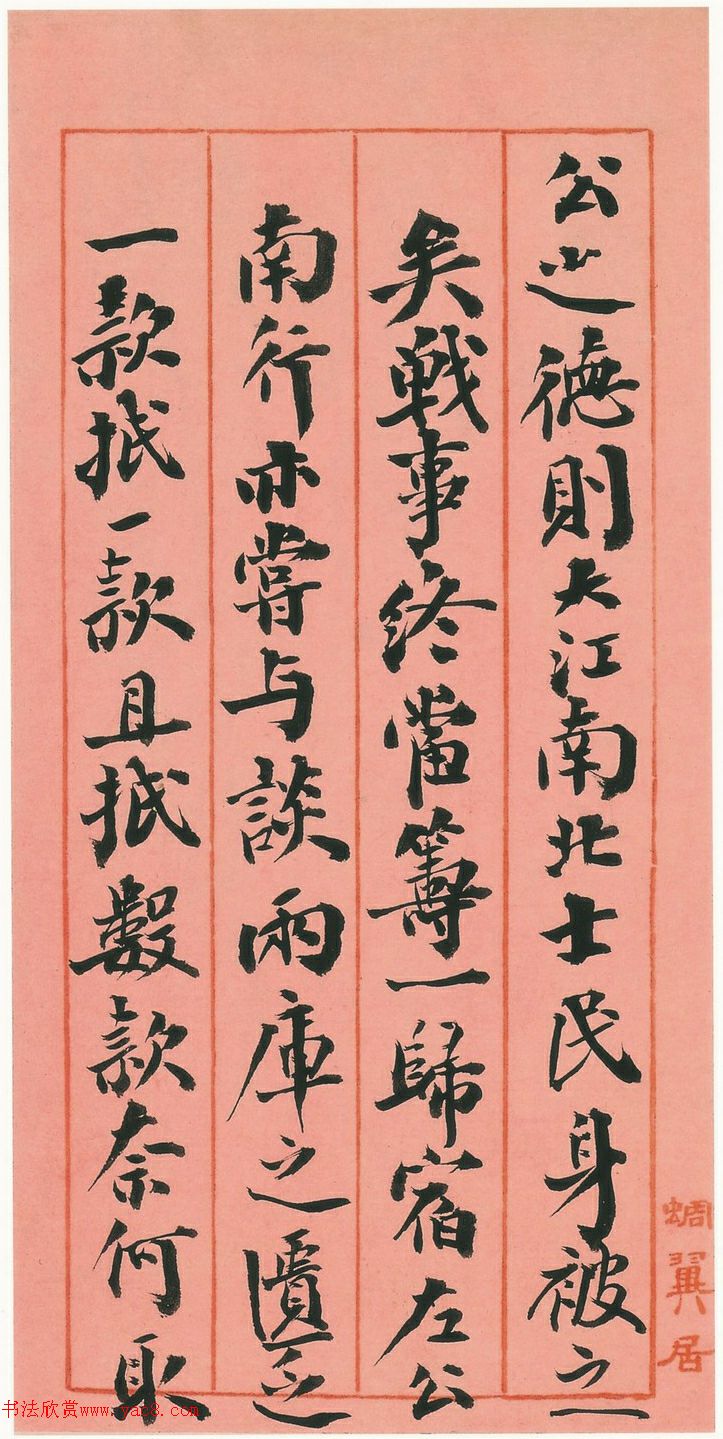 公之德則大江南北士民身被之
矣戰事終當籌一歸宿左公
南行亦嘗与談兩庫之匱乏
一款抵一款且抵數款奈何取
蜩翼居
书法欣赏www.yac8.com